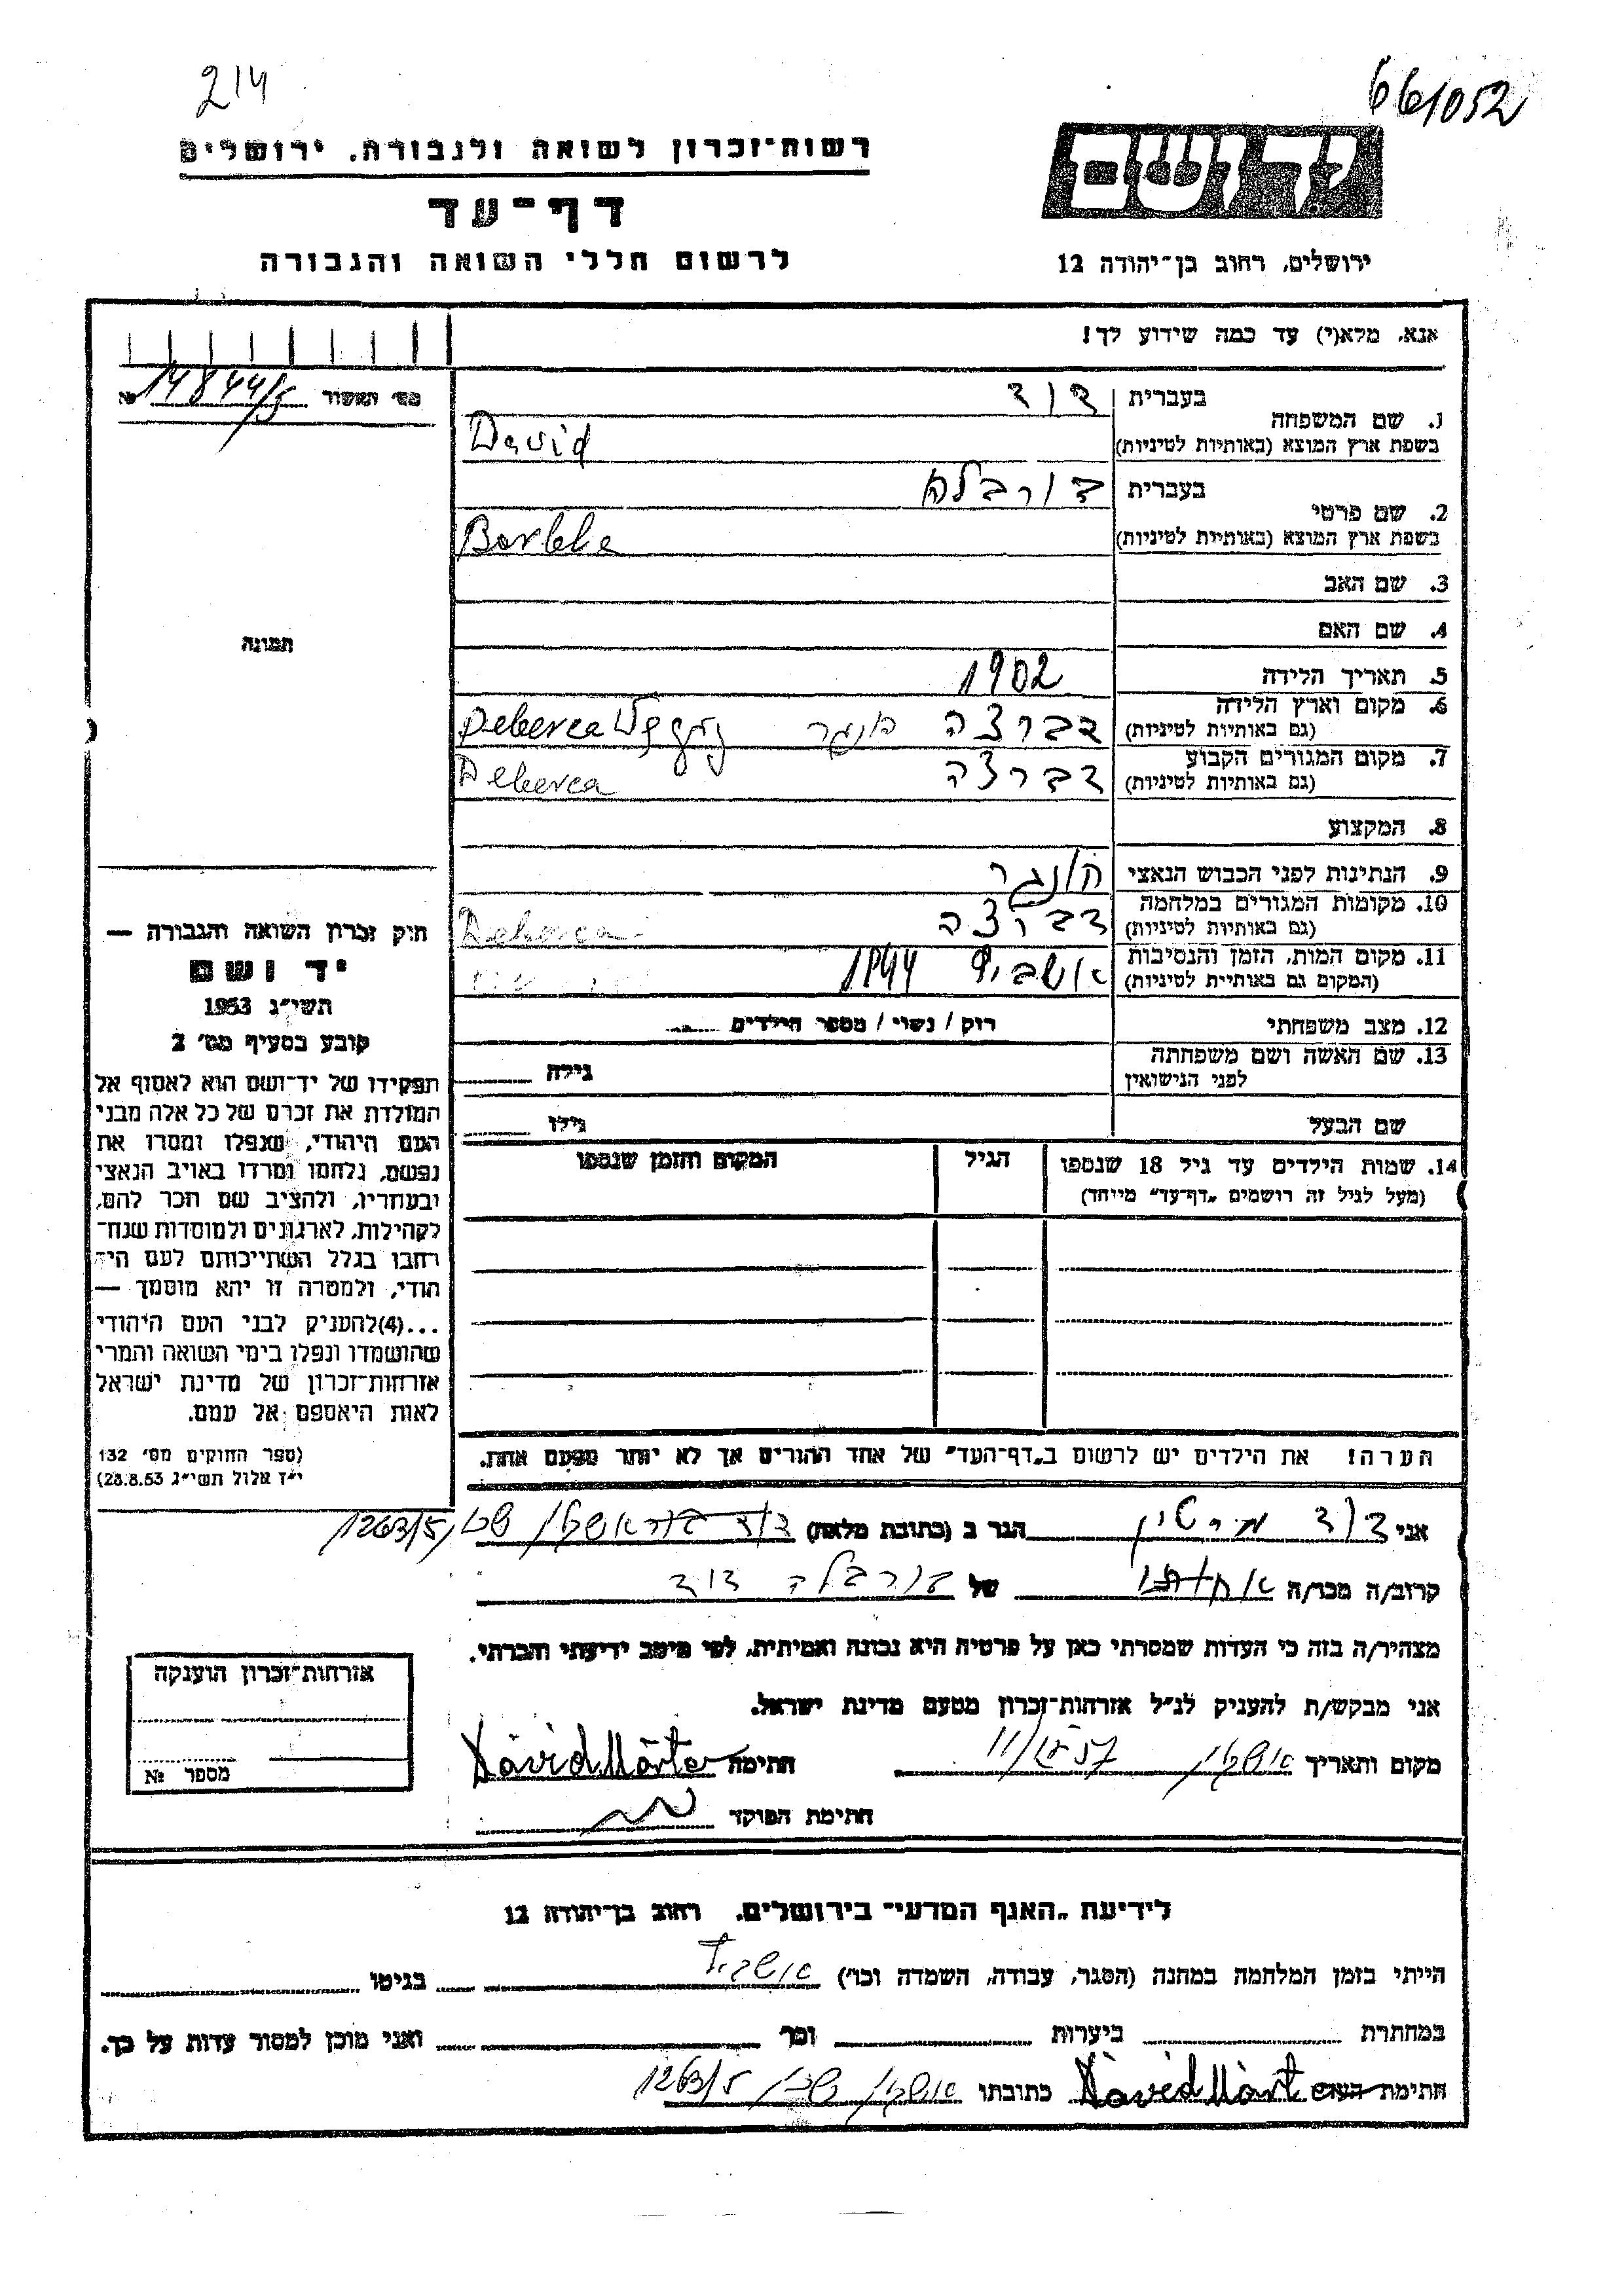 214
661052
רשות־זכרון לשואה ולגבורה. ירושלים
ידושם
דף־עד
לרשום חללי השואה והגבורה
ירושלים, רחוב בן־יהודה 12
אנא, מלא(י) עד כמה שידוע לך!
מס' תאשור № 14844/5
1. שם המשפחה
בעברית דוד
בשפת ארץ המוצא (באותיות לטיניות) David
2. שם פרטי
בעברית בורבלה
בשפת ארץ המוצא (באותיות לטיניות)
3. שם האב
4. שם האם
תמונה
5. תאריך הלידה 1902
6. מקום וארץ הלידה
(גם באותיות לטיניות) דברצה הונגר Deberca
7. מקום המגורים הקבוע
(גם באותיות לטיניות) דברצה Deberca
8. המקצוע
9. הנתינות לפני הכבוש הנאצי הונגר
10. מקומות המגורים במלחמה
(גם באותיות לטיניות) דברצה Deberca
11. מקום המות, הזמן והנסיבות
(המקום גם באותיות לטיניות) אושביץ 1944
12. מצב משפחתי רוק / נשוי / מספר הילדים
13. שם האשה ושם משפחתה
לפני הנישואין גילה
שם הבעל גילו
14. שמות הילדים עד גיל 18 שנספו הגיל המקום והזמן שנספו
(מעל לגיל זה רושמים „דף־עד" מיוחד)
הערה! את הילדים יש לרשום ב„דף־העד" של אחד ההורים אך לא יותר מפעם אחת.
חוק זכרון השואה והגבורה —
יד ושם
תשי"ג 1953
קובע בסעיף מס' 2
תפקידו של יד־ושם הוא לאסוף אל
המולדת את זכרם של כל אלה מבני
העם היהודי, שנפלו ומסרו את
נפשם, נלחמו ומרדו באויב הנאצי
ובעוזריו, ולהציב שם וזכר להם,
לקהילות, לארגונים ולמוסדות שנח־
רחבו בגלל השתייכותם לעם הי־
הודי, ולמטרה זו יהא מוסמך —
...(4) להעניק לבני העם היהודי
שהושמדו ונפלו בימי השואה והמרי
אזרחות־זכרון של מדינת ישראל
לאות היאספם אל עמם.
(ספר החוקים מס' 132
י"ז אלול תשי"ג 28.8.53)
אני דוד מרטין הגר ב (כתובת מלאה) 1263/5
קרוב/ה מכר/ה של בורבלה דוד
מצהיר/ה בזה כי העדות שמסרתי כאן על פרטיה היא נכונה ואמיתית, לפי מיטב ידיעתי והכרתי.
אני מבקש/ת להעניק לנ"ל אזרחות־זכרון מטעם מדינת ישראל.
מקום ותאריך חתימה Dávid Márta
חתימת הפוקד
אזרחות־זכרון הוענקה
מספר №
לידיעת „האגף המדעי" בירושלים. רחוב בן־יהודה 12
הייתי בזמן המלחמה במחנה (הסגר, עבודה, השמדה וכו') אושביץ בגיטו
במחתרת ביערות וכו' ואני מוכן למסור עדות על כך.
חתימת העד Dávid Márt כתובתו 1263/5